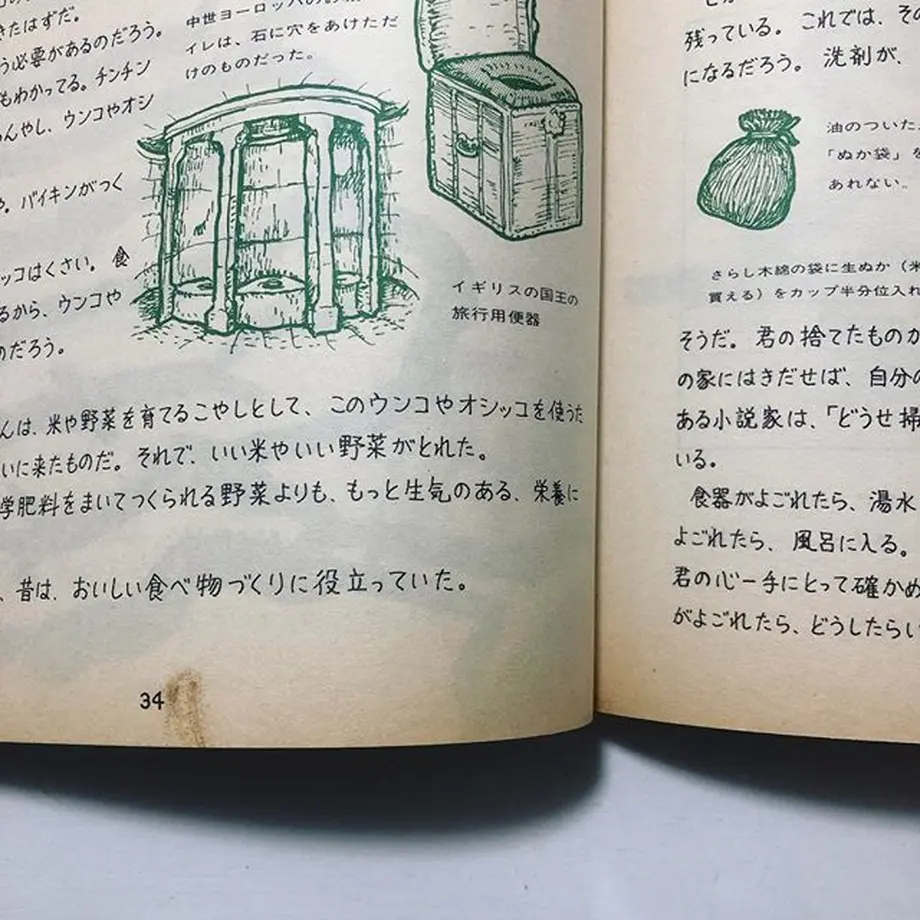 きたはずだ。
う必要があるのだろう。
もわかってる。チンチン
んやし、ウンコやオシ
や。バイキンがつく
ッコはくさい。食
るから、ウンコや
のだろう。
イレは、石に穴をあけただ
けのものだった。
イギリスの国王の
旅行用便器
んは、米や野菜を育てるこやしとして、このウンコやオシッコを使うた
いに来たものだ。それで、いい米やいい野菜がとれた。
学肥料をまいてつくられる野菜よりも、もっと生気のある、栄養に
、昔は、おいしい食べ物づくりに役立っていた。
34
残っている。これでは、その
になるだろう。洗剤が、
油のついた
「ぬか袋」を
あれない。
さらし木綿の袋に生ぬか（米
買える）をカップ半分位入れ
そうだ。君の捨てたものが
の家にはきだせば、自分の
ある小説家は、「どうせ掃
いる。
食器がよごれたら、湯水
よごれたら、風呂に入る。
君の心一手にとって確かめ
がよごれたら、どうしたらい